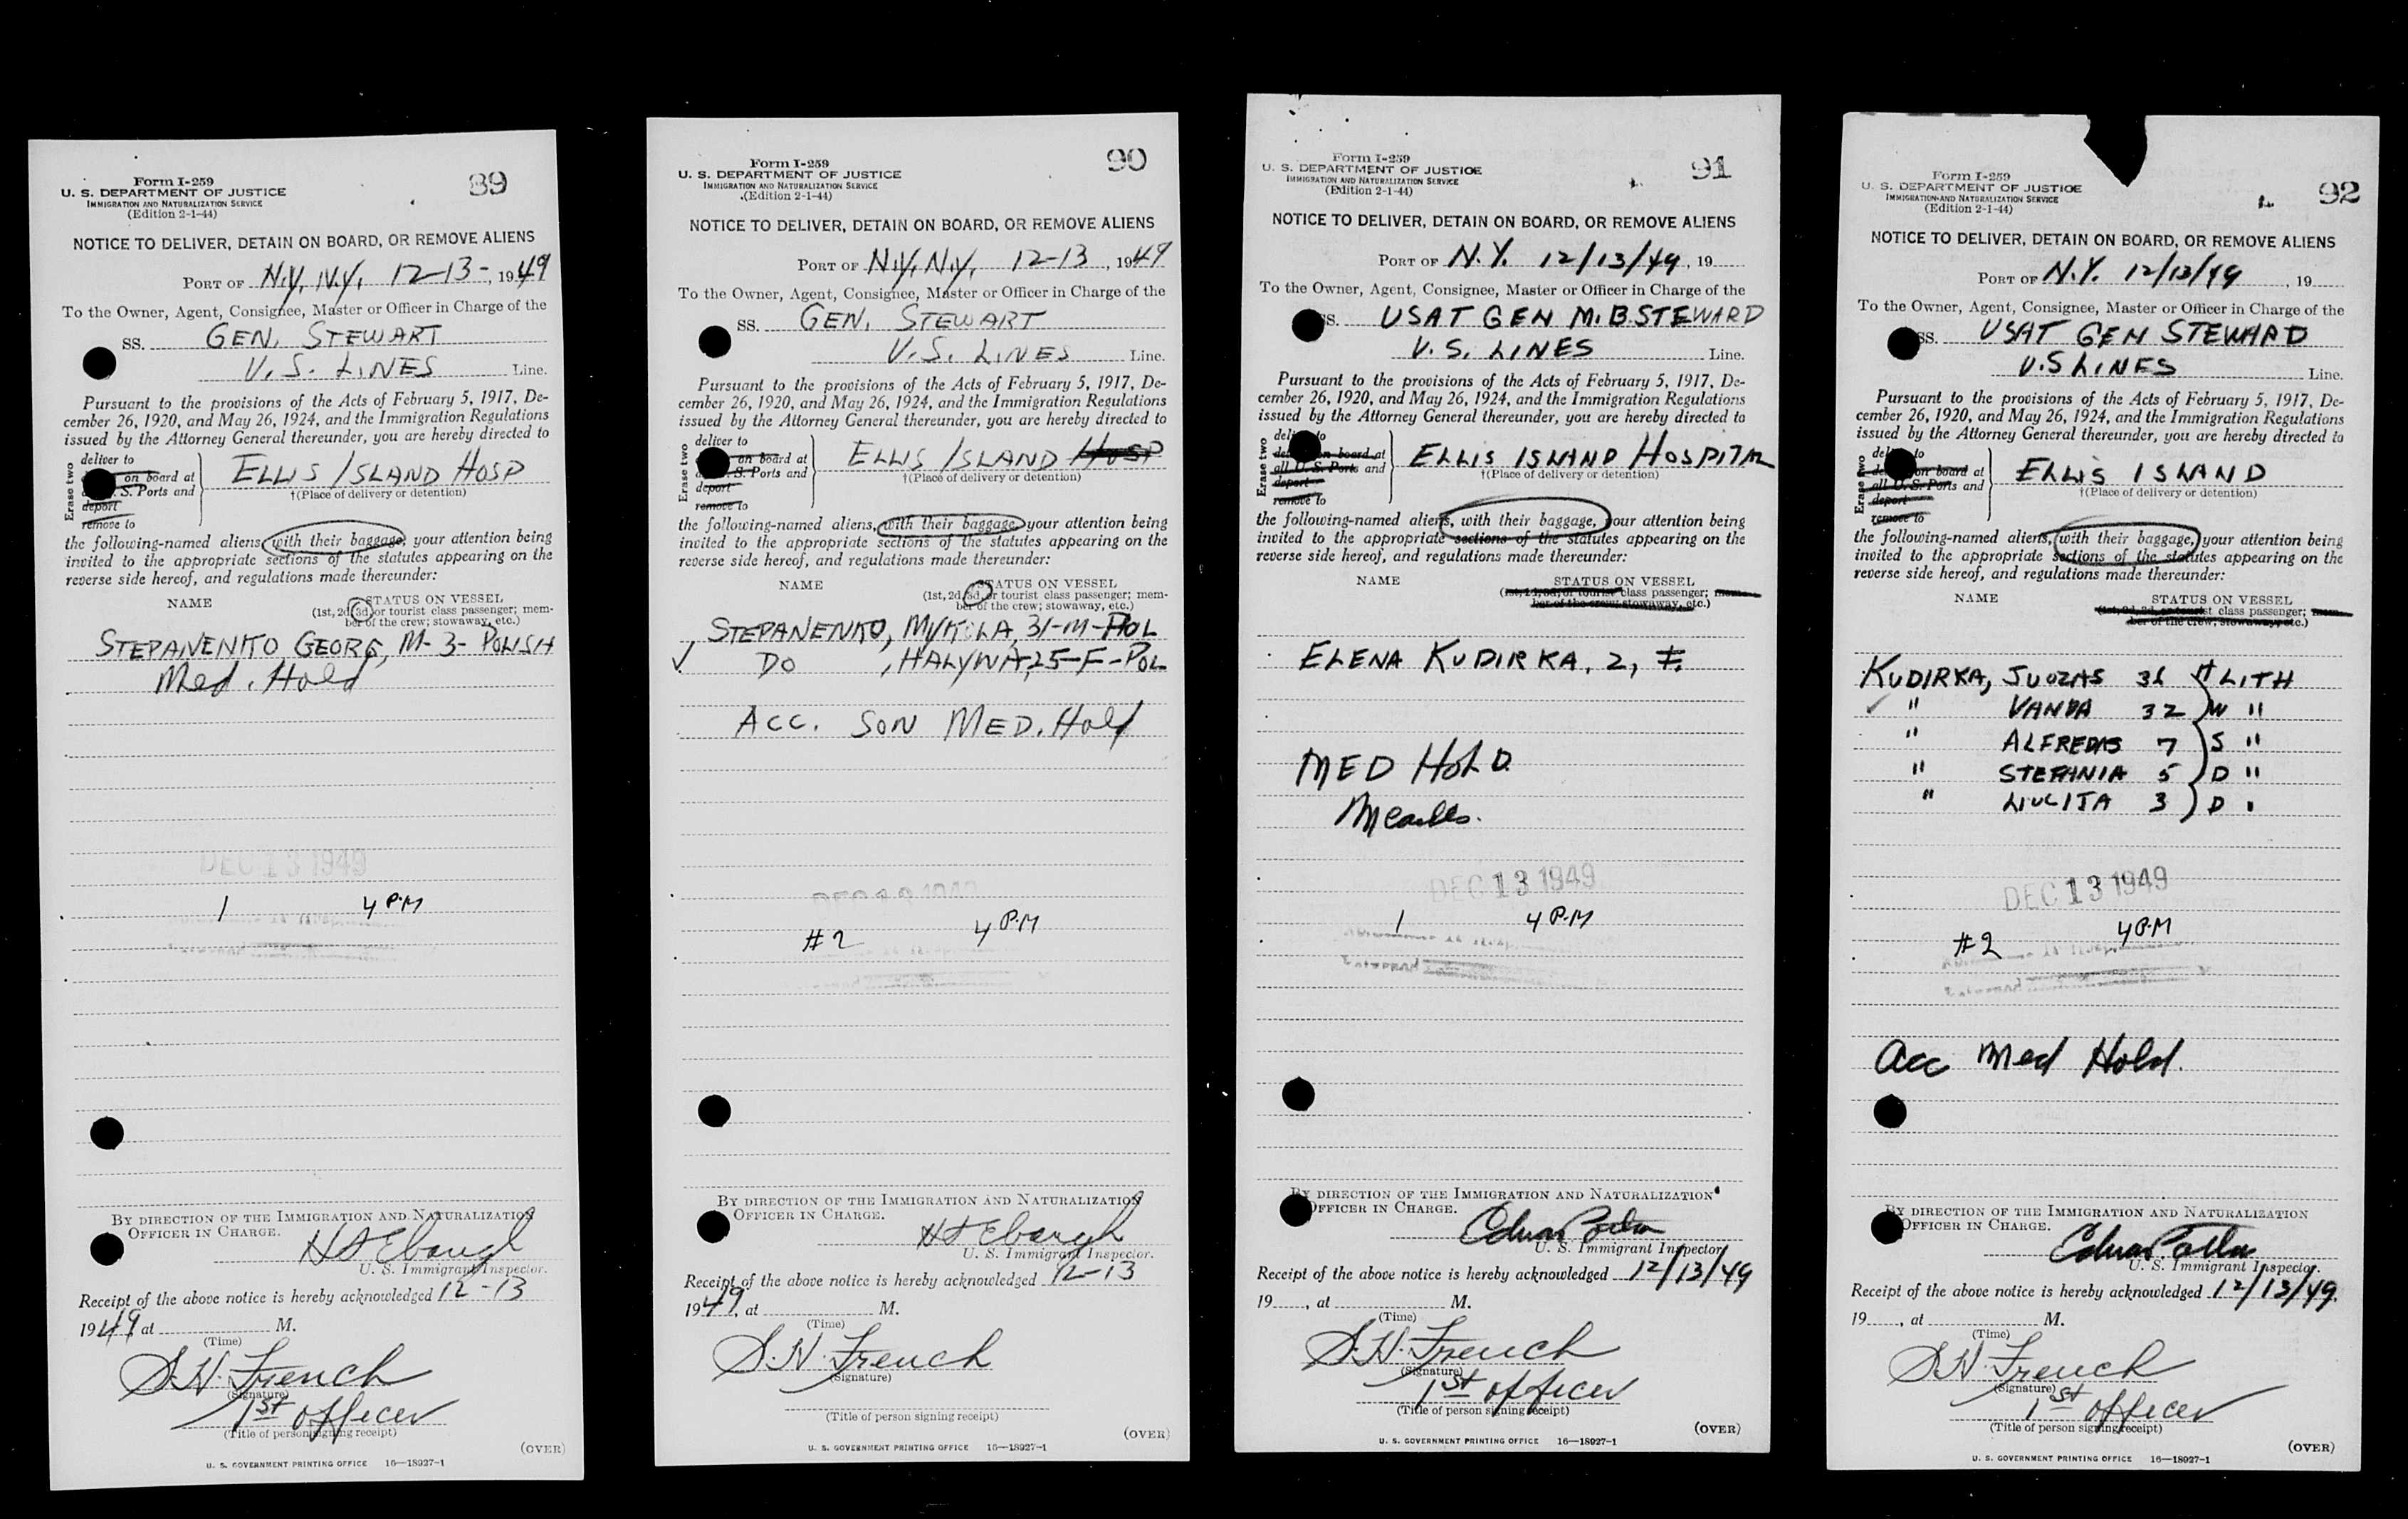 Form I-259
U. S. DEPARTMENT OF JUSTICE
IMMIGRATION AND NATURALIZATION SERVICE
(Edition 2-1-44)
89
NOTICE TO DELIVER, DETAIN ON BOARD, OR REMOVE ALIENS
PORT OF N.Y, N.Y, 12-13-, 1949
To the Owner, Agent, Consignee, Master or Officer in Charge of the
SS. GEN. STEWART
U.S. LINES Line.
Pursuant to the provisions of the Acts of February 5, 1917, De-
cember 26, 1920, and May 26, 1924, and the Immigration Regulations
issued by the Attorney General thereunder, you are hereby directed to
Erase two
deliver to
on board at
S. Ports and
deport
remove to
ELLIS ISLAND HOSP
†(Place of delivery or detention)
the following-named aliens, with their baggage, your attention being
invited to the appropriate sections of the statutes appearing on the
reverse side hereof, and regulations made thereunder:
NAME
STATUS ON VESSEL
(1st, 2d, 3d, or tourist class passenger; mem-
ber of the crew; stowaway, etc.)
STEPANENKO GEORG, M-3-POLISH
Med. Hold
DEC 13 1949
1 4 P.M
BY DIRECTION OF THE IMMIGRATION AND NATURALIZATION
OFFICER IN CHARGE.
H S Ebaugh
U. S. Immigrant Inspector.
Receipt of the above notice is hereby acknowledged 12-13
1949 at M.
(Time)
S.H. French
(Signature)
1st officer
(Title of person signing receipt)
(OVER)
U. S. GOVERNMENT PRINTING OFFICE 16—18927-1
Form I-259
U. S. DEPARTMENT OF JUSTICE
IMMIGRATION AND NATURALIZATION SERVICE
(Edition 2-1-44)
90
NOTICE TO DELIVER, DETAIN ON BOARD, OR REMOVE ALIENS
PORT OF N.Y, N.Y, 12-13, 1949
To the Owner, Agent, Consignee, Master or Officer in Charge of the
SS. GEN. STEWART
U.S. LINES Line.
Pursuant to the provisions of the Acts of February 5, 1917, De-
cember 26, 1920, and May 26, 1924, and the Immigration Regulations
issued by the Attorney General thereunder, you are hereby directed to
Erase two
deliver to
on board at
S. Ports and
deport
remove to
ELLIS ISLAND HOSP
†(Place of delivery or detention)
the following-named aliens, with their baggage, your attention being
invited to the appropriate sections of the statutes appearing on the
reverse side hereof, and regulations made thereunder:
NAME
STATUS ON VESSEL
(1st, 2d, 3d, or tourist class passenger; mem-
ber of the crew; stowaway, etc.)
STEPANENKO, MYKOLA, 31-M-POL
✓ DO , HALYNA, 25-F-POL
ACC. SON MED. Hold
#2 4 P.M
BY DIRECTION OF THE IMMIGRATION AND NATURALIZATION
OFFICER IN CHARGE.
H S Ebaugh
U. S. Immigrant Inspector.
Receipt of the above notice is hereby acknowledged 12-13
1949, at M.
(Time)
S.H. French
(Signature)
(Title of person signing receipt)
(OVER)
U. S. GOVERNMENT PRINTING OFFICE 16—18927-1
Form I-259
U. S. DEPARTMENT OF JUSTICE
IMMIGRATION AND NATURALIZATION SERVICE
(Edition 2-1-44)
91
NOTICE TO DELIVER, DETAIN ON BOARD, OR REMOVE ALIENS
PORT OF N.Y. 12/13/49, 19
To the Owner, Agent, Consignee, Master or Officer in Charge of the
SS. USAT GEN M.B. STEWARD
U.S. LINES Line.
Pursuant to the provisions of the Acts of February 5, 1917, De-
cember 26, 1920, and May 26, 1924, and the Immigration Regulations
issued by the Attorney General thereunder, you are hereby directed to
Erase two
deliver to
on board at
all U. S. Ports and
deport
remove to
ELLIS ISLAND HOSPITAL
†(Place of delivery or detention)
the following-named aliens, with their baggage, your attention being
invited to the appropriate sections of the statutes appearing on the
reverse side hereof, and regulations made thereunder:
NAME
STATUS ON VESSEL
(1st, 2d, 3d, or tourist class passenger; mem-
ber of the crew; stowaway, etc.)
ELENA KUDIRKA, 2, F.
MED HOLD.
Measles.
DEC 13 1949
1 4 P.M
BY DIRECTION OF THE IMMIGRATION AND NATURALIZATION
OFFICER IN CHARGE.
U. S. Immigrant Inspector
Receipt of the above notice is hereby acknowledged 12/13/49
19, at M.
(Time)
S.H. French
(Signature)
1st officer
(Title of person signing receipt)
(OVER)
U. S. GOVERNMENT PRINTING OFFICE 16—18927-1
Form I-259
U. S. DEPARTMENT OF JUSTICE
IMMIGRATION AND NATURALIZATION SERVICE
(Edition 2-1-44)
92
NOTICE TO DELIVER, DETAIN ON BOARD, OR REMOVE ALIENS
PORT OF N.Y. 12/13/49, 19
To the Owner, Agent, Consignee, Master or Officer in Charge of the
SS. USAT GEN STEWARD
U.S LINES Line.
Pursuant to the provisions of the Acts of February 5, 1917, De-
cember 26, 1920, and May 26, 1924, and the Immigration Regulations
issued by the Attorney General thereunder, you are hereby directed to
Erase two
deliver to
on board at
all U. S. Ports and
deport
remove to
ELLIS ISLAND
†(Place of delivery or detention)
the following-named aliens, with their baggage, your attention being
invited to the appropriate sections of the statutes appearing on the
reverse side hereof, and regulations made thereunder:
NAME
STATUS ON VESSEL
(1st, 2d, 3d, or tourist class passenger; mem-
ber of the crew; stowaway, etc.)
KUDIRKA, JUOZAS 36 H LITH
✓ " VANDA 32 W "
" ALFREDAS 7 S "
" STEFANIA 5 D "
" LIUCITA 3 D "
DEC 13 1949
#2 4 P.M
Acc Med Hold.
BY DIRECTION OF THE IMMIGRATION AND NATURALIZATION
OFFICER IN CHARGE.
U. S. Immigrant Inspector.
Receipt of the above notice is hereby acknowledged 12/13/49.
19, at M.
(Time)
S.H. French
(Signature)
1st officer
(Title of person signing receipt)
(OVER)
U. S. GOVERNMENT PRINTING OFFICE 16—18927-1